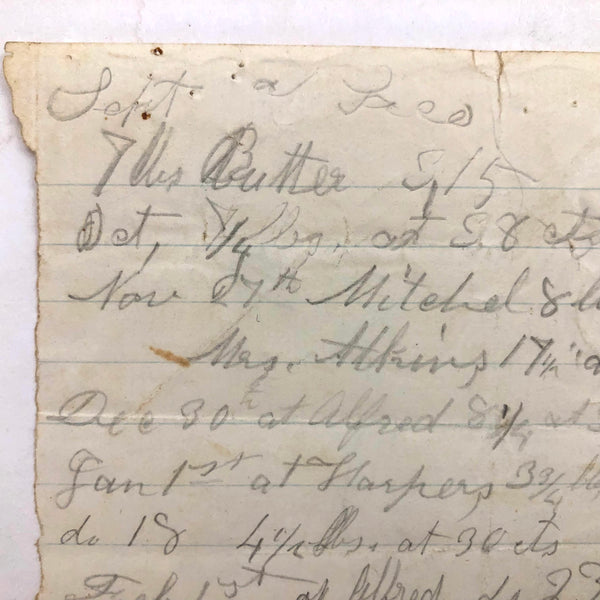 Sept at Feeds
7 lbs Butter 2,15
Oct, 7 1/4 lbs. at 28 cts
Nov 27th Mitchel 8 lb
Mrs. Atkins 17 1/2
Dec 30th at Alfred 8 1/2 at
Jan 1st at Harpers 3 3/4 lbs
do 18 4 1/2 lbs. at 30 cts
Feb 1st at Alfred do 23